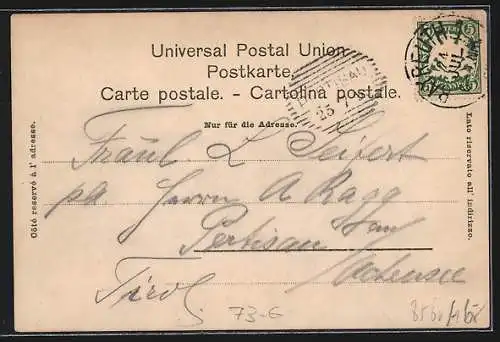 Universal Postal Union
Postkarte.
Carte postale. - Cartolina postale.
Nur für die Adresse.
Côté reservé à l'adresse.
Lato riservato all' indirizzo.
BAYREUTH
5
PERTISAU
23 7
Fräul. L Seifert
pa. Herrn A Ragg
Pertisau am
Achensee
Tirol
73-G